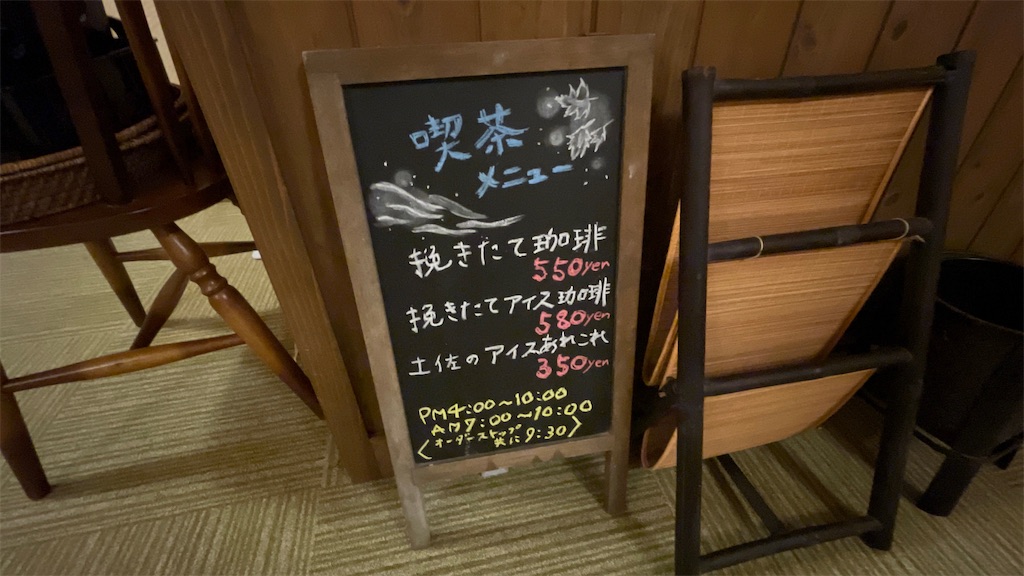 喫茶
メニュー
挽きたて珈琲
550yen
挽きたてアイス珈琲
580yen
土佐のアイスあれこれ
350yen
PM4:00～10:00
AM7:00～10:00
(オーダーストップ 共に9:30)